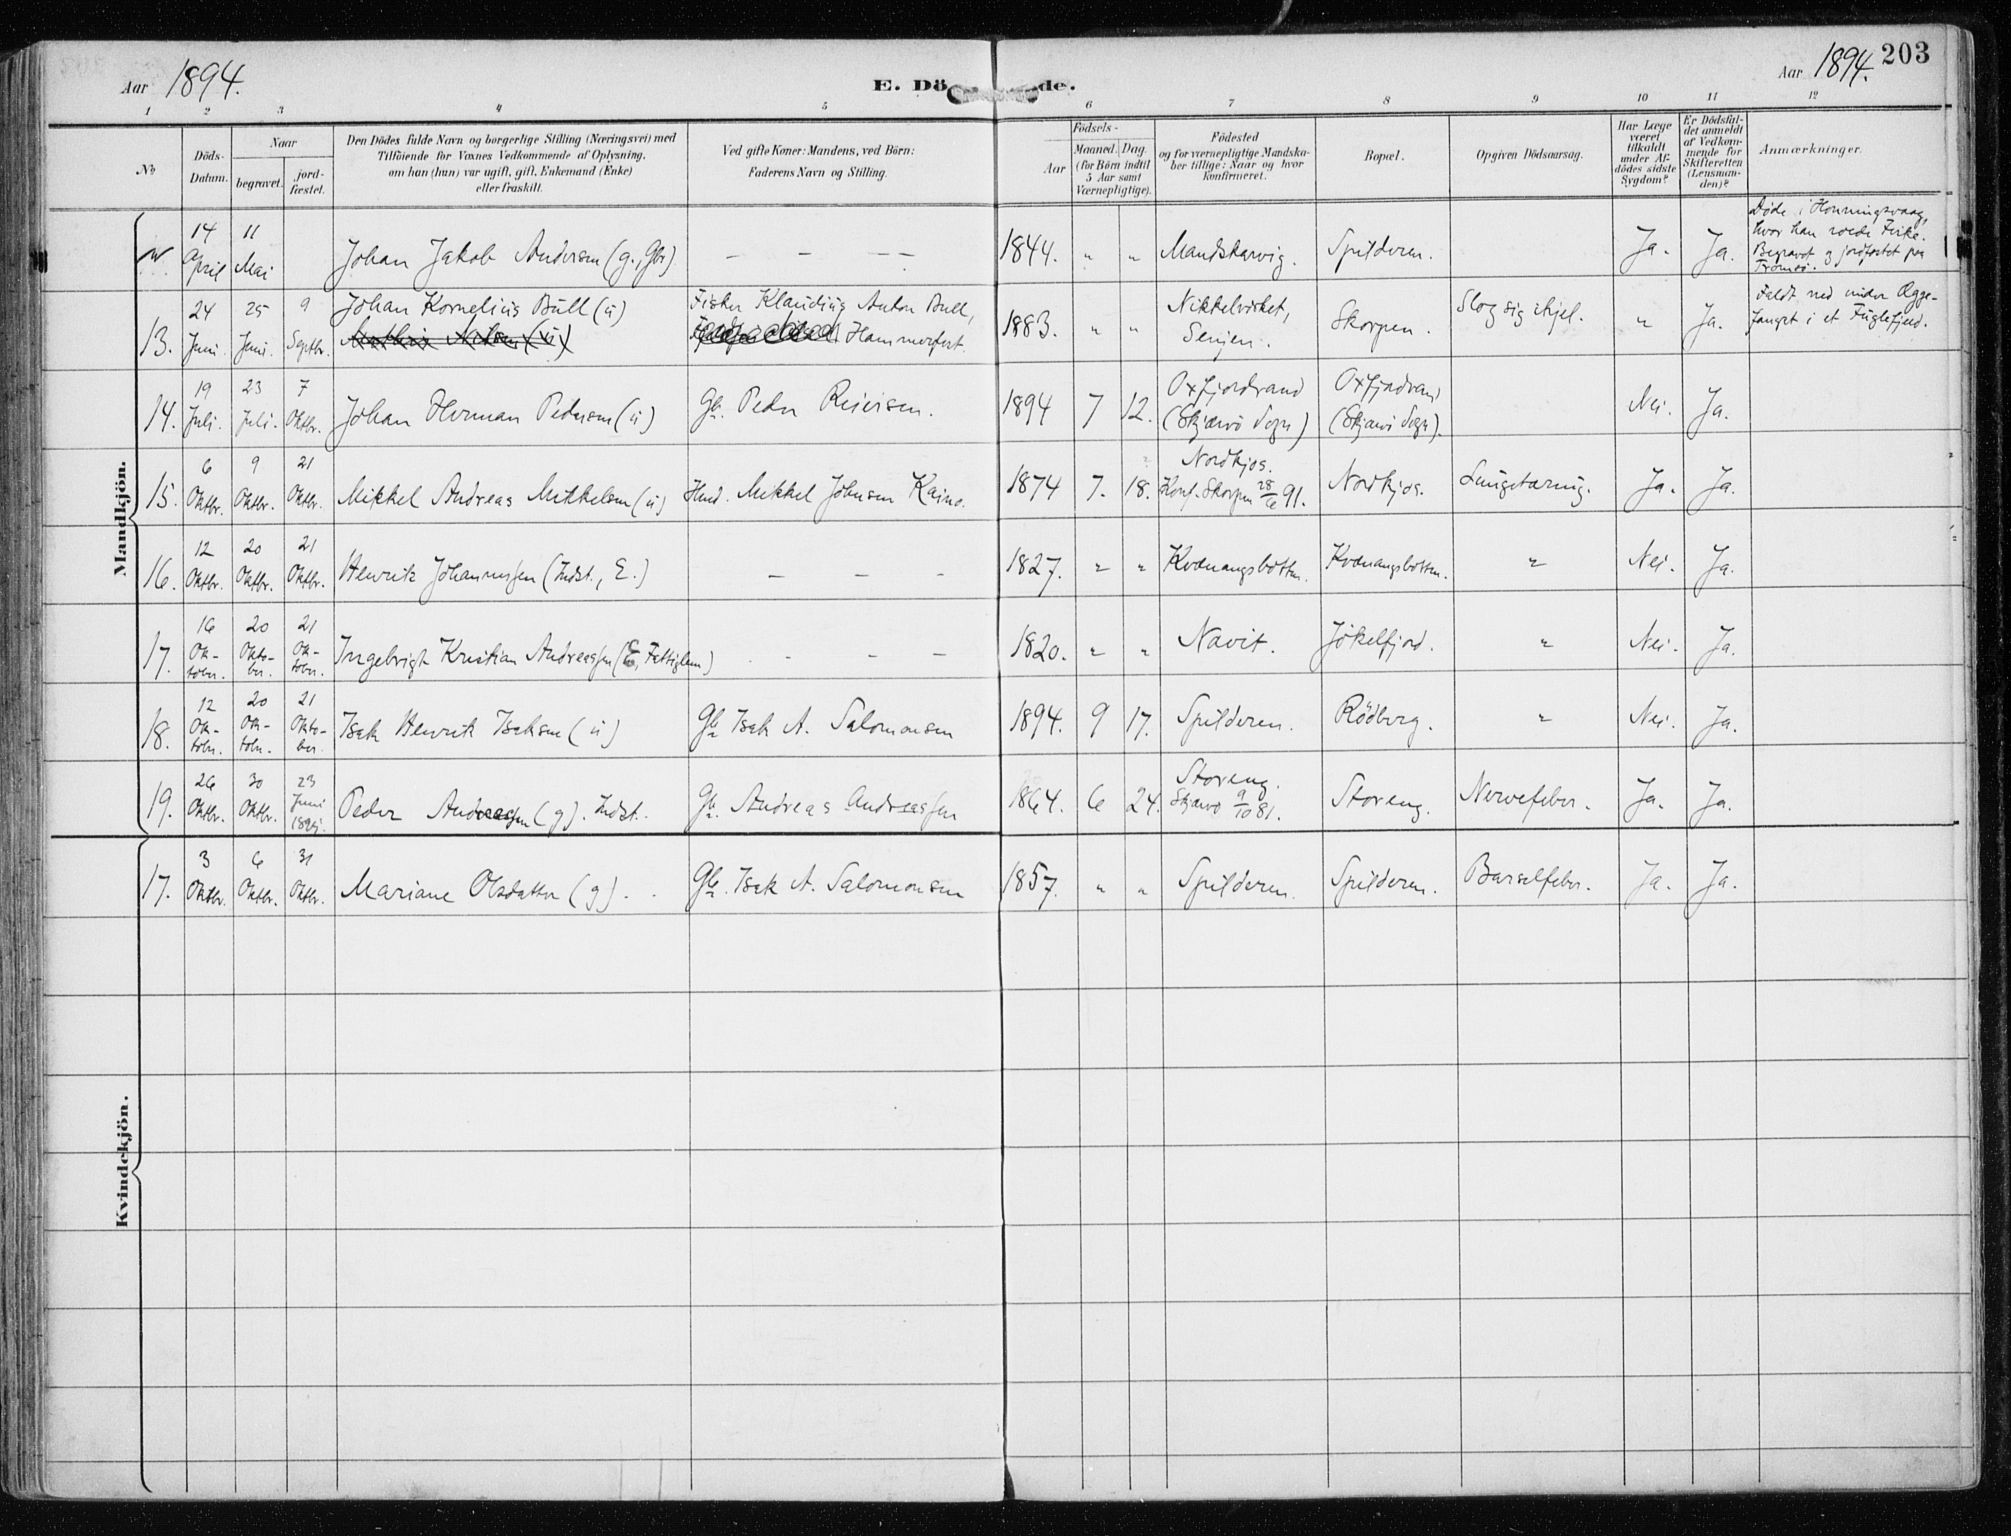 Aar 1894.
E. Dö de.
Aar 1894. 203
1 2 3 4 5 6 7 8 9 10 11 12
No
Döds-Datum.
Naar
begravet.
jord-fæstet.
Den Dödes fulde Navn og borgerlige Stilling (Næringsvei) med
Tilföiende for Voxnes Vedkommende af Oplysning,
om han (hun) var ugift, gift, Enkemand (Enke)
eller fraskilt.
Ved gifte Koner: Mandens, ved Börn:
Faderens Navn og Stilling.
Födsels-
Aar
Maaned. Dag.
(for Börn indtil
5 Aar samt
Værnepligtige).
Födested
og for værnepligtige Mandska-
ber tillige: Naar og hvor
konfirmeret.
Bopæl.
Opgiven Dödsaarsag.
Har Læge
været
tilkaldt
under Af-
dödes sidste
Sygdom?
Er Dödsfal-
det anmeldt
af Vedkom-
mende for
Skifteretten
(Lensman-
den)?
Anmærkninger.
Mandkjön.
14 April 11 Mai Johan Jakob Andersen (g., Gbr.) – – – – 1844. " " Mandskarvig. Spilderen. Ja. Ja. Døde i Honningsvaag,
hvor han roede Fiske.
Begravet og jordfæstet paa
Tromsö.
13. 24 Juni. 25 Juni. 9 Septbr. Johan Kornelius Bull (ú) Fisker Klaudius Anton Bull,
Hammerfest. 1883. " " Nikkelverket,
Senjen. Skorpen. Slog sig ihjel. " Ja. Faldt ned under Ægge-
fangst i et Fuglefjeld.
14. 19 Juli. 23 Juli. 7 Oktbr. Johan Herman Pedersen (ú) Gb. Peder Reiersen. 1894 7 12. Oxfjordvand
(Skjærvö Sogn) Oxfjordvand
(Skjærvö Sogn). Nei. Ja.
15. 6 Oktbr. 9 Oktbr. 21 Oktbr. Mikkel Andreas Mikkelsen (ú) Hmd. Mikkel Johnsen Kaino. 1874 7. 18. Nordkjos.
Konf. Skorpen 28/6 91. Nordkjos. Lungetæring. Ja. Ja.
16. 12 Oktbr. 20 Oktbr. 21 Oktbr. Henrik Johannessen (Indst., E.) – – – 1827. " " Kvænangsbotten. Kvænangsbotten. " Nei. Ja.
17. 16 Ok-
tober. 20 Okto-
ber. 21 Ok-
tober. Ingebrigt Kristian Andreassen (E, Fattiglem) – – – 1820. " " Navit. Jökelfjord. " Nei. Ja.
18. 12 Ok-
tober. 20 Ok-
tober. 21 Okto-
ber. Isak Henrik Isaksen (ú) Gbr Isak A. Salomonsen 1894. 9 17. Spilderen. Rödberg. " Nei. Ja.
19. 26 Oktbr. 30 Oktbr. 23 Juni Peder Andreassen (g). Indst. Gbr. Andreas Andreassen 1864. 6 24. Storeng.
Skjærvö 9/10 81. Storeng. Nervefeber. Ja. Ja.
Kvindekjön.
17. 3 Oktbr. 6 Oktbr. 31 Oktbr. Mariane Olsdatter (g). Gbr. Isak A. Salomonsen 1857. " " Spilderen. Spilderen. Barselfeber. Ja. Ja.